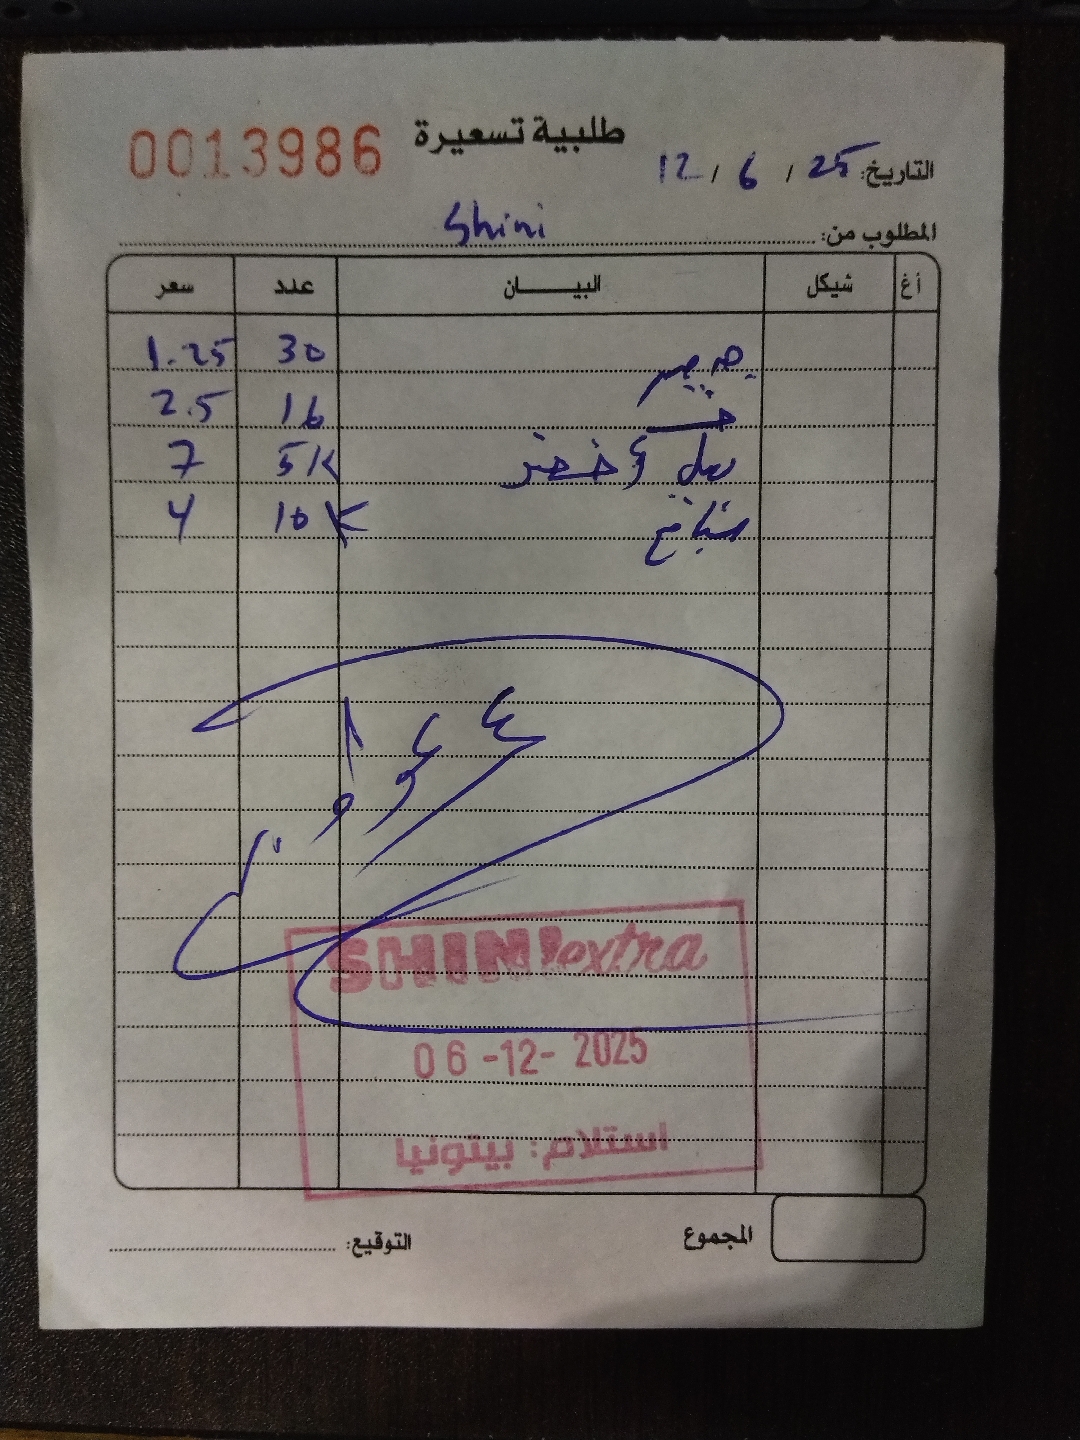 طلبية تسعيرة
0013986
التاريخ: 25 / 6 / 12
المطلوب من: Shini
أغ شيكل البيـــــان عدد سعر
30 1.25
خس 16 2.5
بصل أخضر 5K 7
سبانخ 10K 4
SHINI extra
06 -12- 2025
استلام: بيتونيا
المجموع
التوقيع: